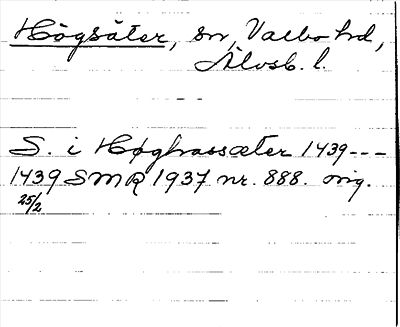 Högsäter, sn, Valbo hd,
Älvsb. l.
S. i Høghassæter 1439---
1439 SMR 1937 nr. 888. orig.
25/2